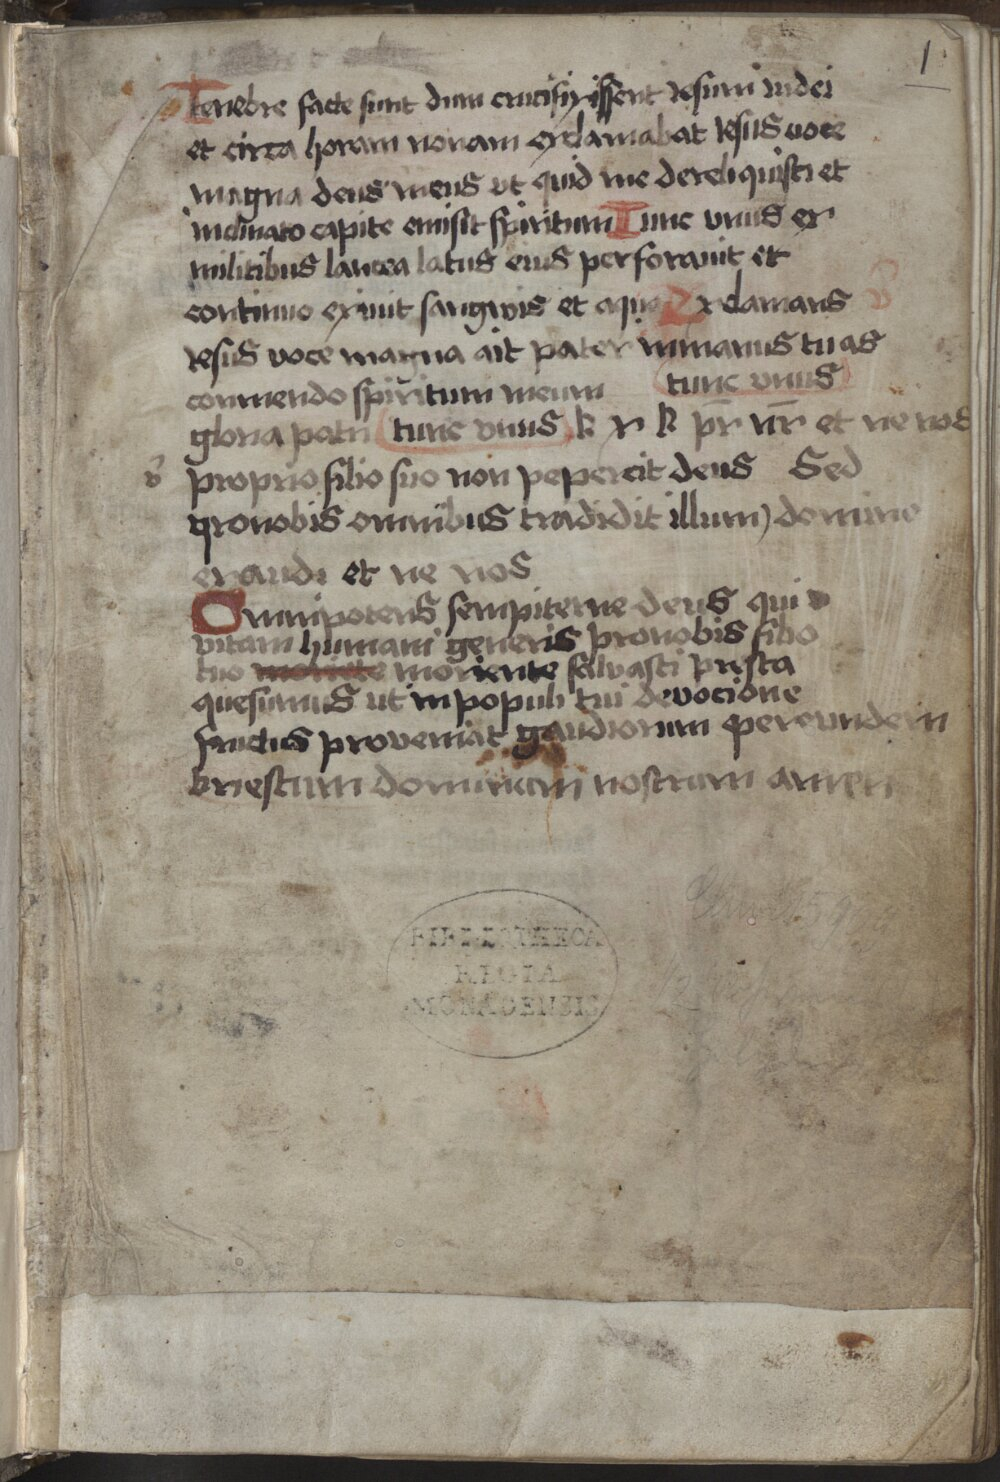 1
Tenebre facte sunt dum crucifixissent Jesum iudei
et circa horam nonam exclamabat Jesus voce
magna deus meus ut quid me dereliquisti et
inclinato capite emisit spiritum Tunc unus ex
militibus lancea latus eius perforauit et
continuo exiuit sangwis et aqua Exclamans
Jesus voce magna ait pater in manus tuas
commendo spiritum meum tunc vnus
gloria patri tunc vnus k x k pr nr et ne nos
proprio filio suo non pepercit deus Sed
pronobis omnibus tradidit illum domine
exaudi et ne nos
Omnipotens sempiterne deus qui
vitam humani generis pronobis filio
tuo moriente saluasti presta
quesumus ut in populi tui deuocione
fructus proueniat gaudiorum per eundem
dominum nostrum amen
BIBLIOTHECA
REGIA
MONACENSIS